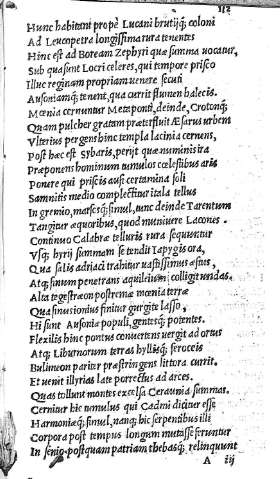 112
Hunc habitant propè Lucani brutijq; coloni
Ad Leucopetre longissima rura tenentes
Hinc est ad Boream Zephyri quæ summa uocatur,
Sub qua sunt Locri celeres, qui tempore prisco
Illuc reginam propriam uenere secuti
Ausoniamq; tenent, qua currit flumen halecis.
Mœnia cernuntur Metaponti, deinde, Crotonq;
Quam pulcher gratam præterfluit Æsarus urbem
Vlterius pergens hinc templa lacinia cernens,
Post hæc est Sybaris, perijt quæ numinis ira
Præponens hominum tumulos cœlestibus aris
Ponere qui priscis ausi certamina soli
Samnitis medio complectitur itala tellus
In gremio, marsesq; simul, nunc deinde Tarentum
Tangitur æquoribus, quod muniuere Lacones.
Continuo Calabræ telluris rura sequuntur
Vsq; hyrij summam se tendit Iapygis ora,
Qua salis adriaci trahitur uastissimus æstus,
Atq; sinum penetrans aquileium colligit undas.
Alta tegestræon postremæ mœnia terræ
Qua sinus ionius finitur gurgite lasso,
Hi sunt Ausonia populi, gentesq; potentes.
Flexilis hinc pontus conuertens uergit ad ortus
Atq; Liburnorum terras hyllisq; feroceis
Bulimeon pariter præstringens littora currit.
Et uenit illyrias late porrectus ad arces.
Quas tollunt montes excelsa Ceraunia summas.
Cernitur hic tumulus qui Cadmi dicitur esse
Harmoniæq; simul, nanq; hic serpentibus illi
Corpora post tempus longum mutasse feruntur
In senio postquam patriam thebasq; relinquunt
A iij